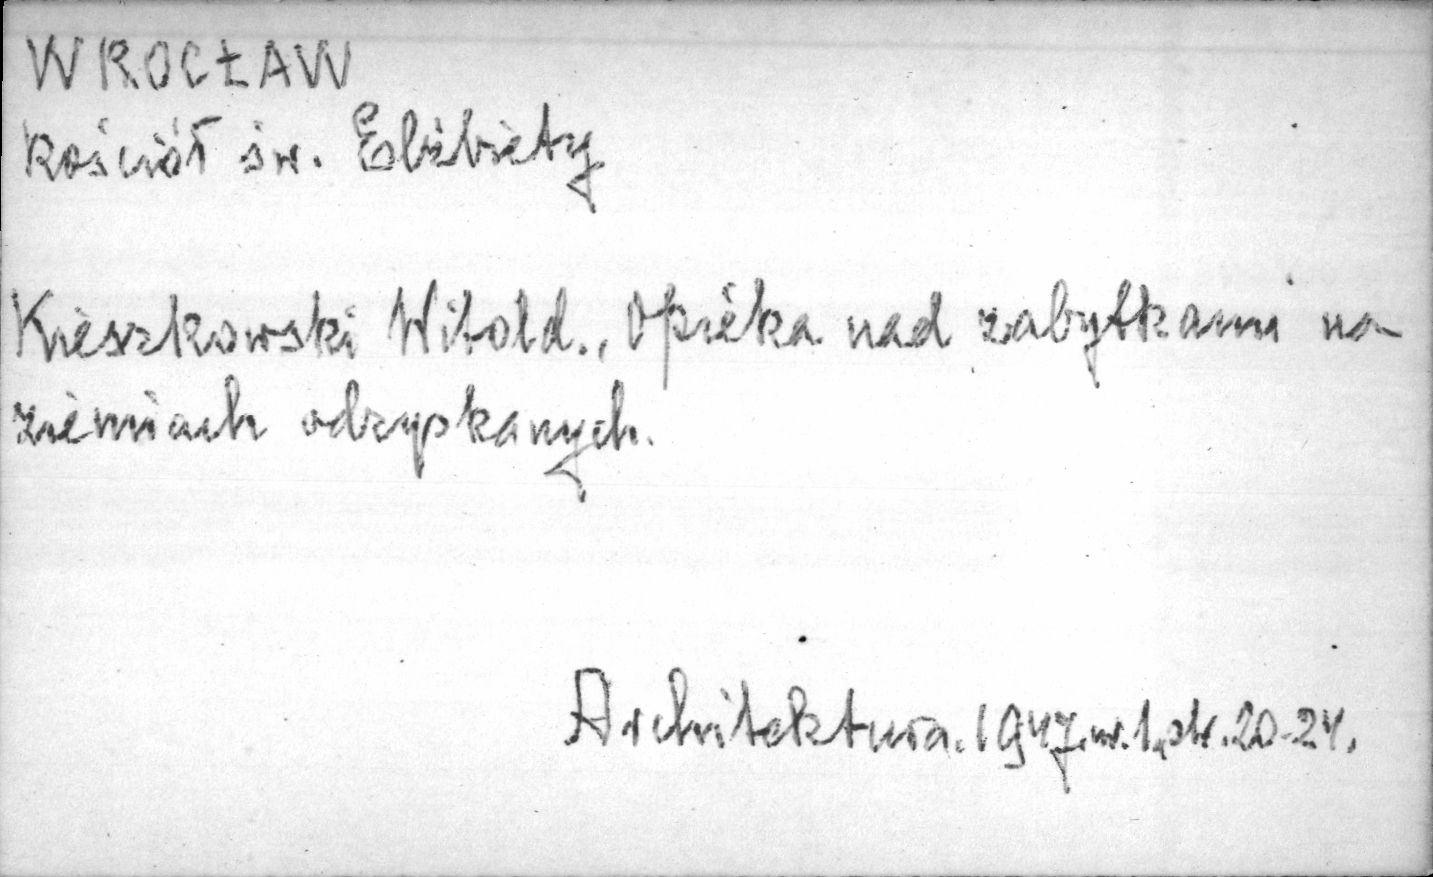 WROCŁAW
Kościół św. Elżbiety
Kieszkowski Witold., Opieka nad zabytkami na
ziemiach odzyskanych.
Architektura.1947.nr.1,str.20-24.